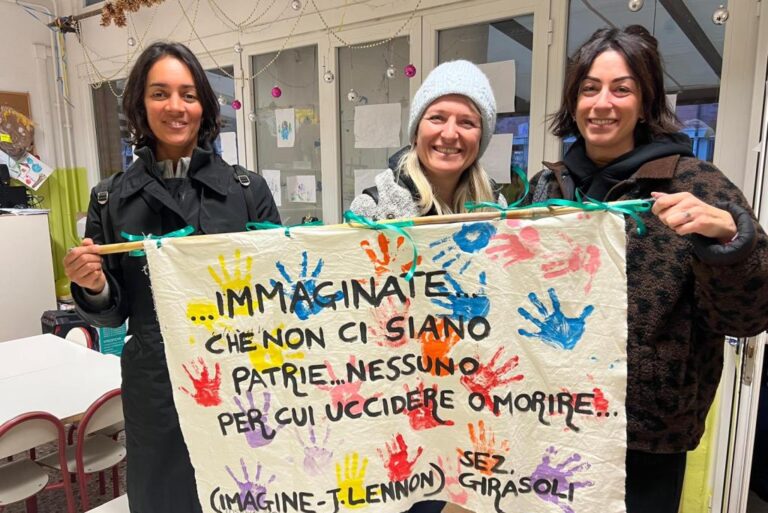 ...IMMAGINATE...
CHE NON CI SIANO
PATRIE...NESSUNO
PER CUI UCCIDERE O MORIRE...
(IMAGINE-J.LENNON)
SEZ.
GIRASOLI